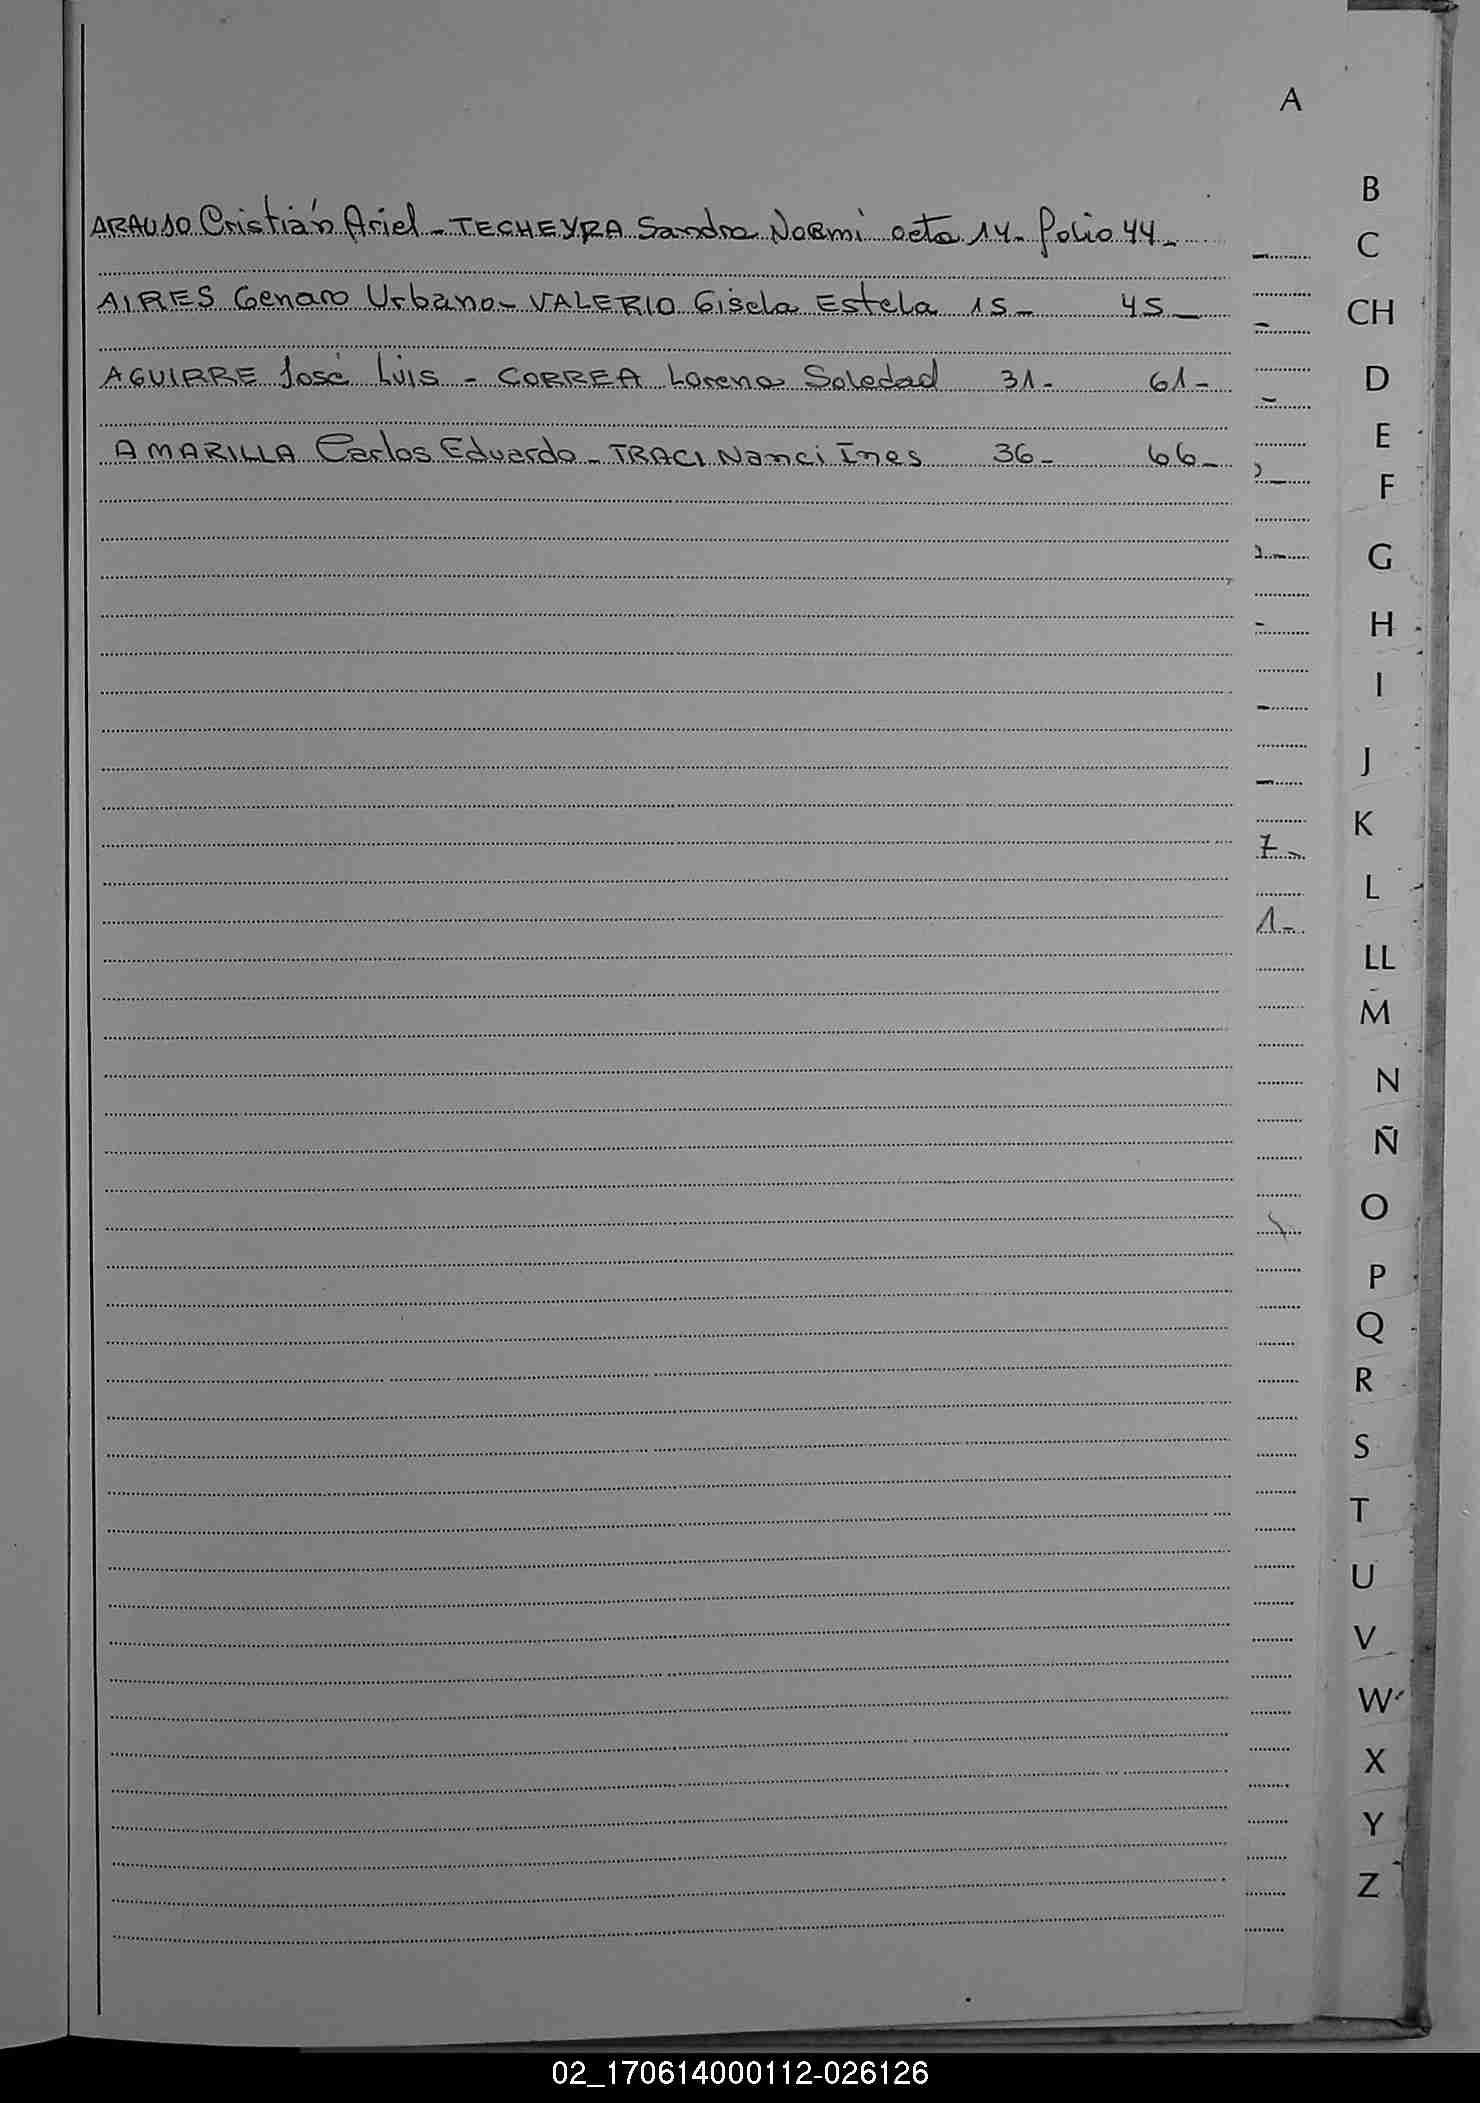 A
ARAUJO Cristián Ariel - TECHEYRA Sandra Noemi acta 14- folio 44-
AIRES Genaro Urbano - VALERIO Gisela Estela 15- 45-
AGUIRRE José Luis - CORREA Lorena Soledad 31- 61-
AMARILLA Carlos Eduardo - TRACI Nanci Ines 36- 66-
7-
1-
B
C
CH
D
E
F
G
H
I
J
K
L
LL
M
N
Ñ
O
P
Q
R
S
T
U
V
W
X
Y
Z
02_170614000112-026126